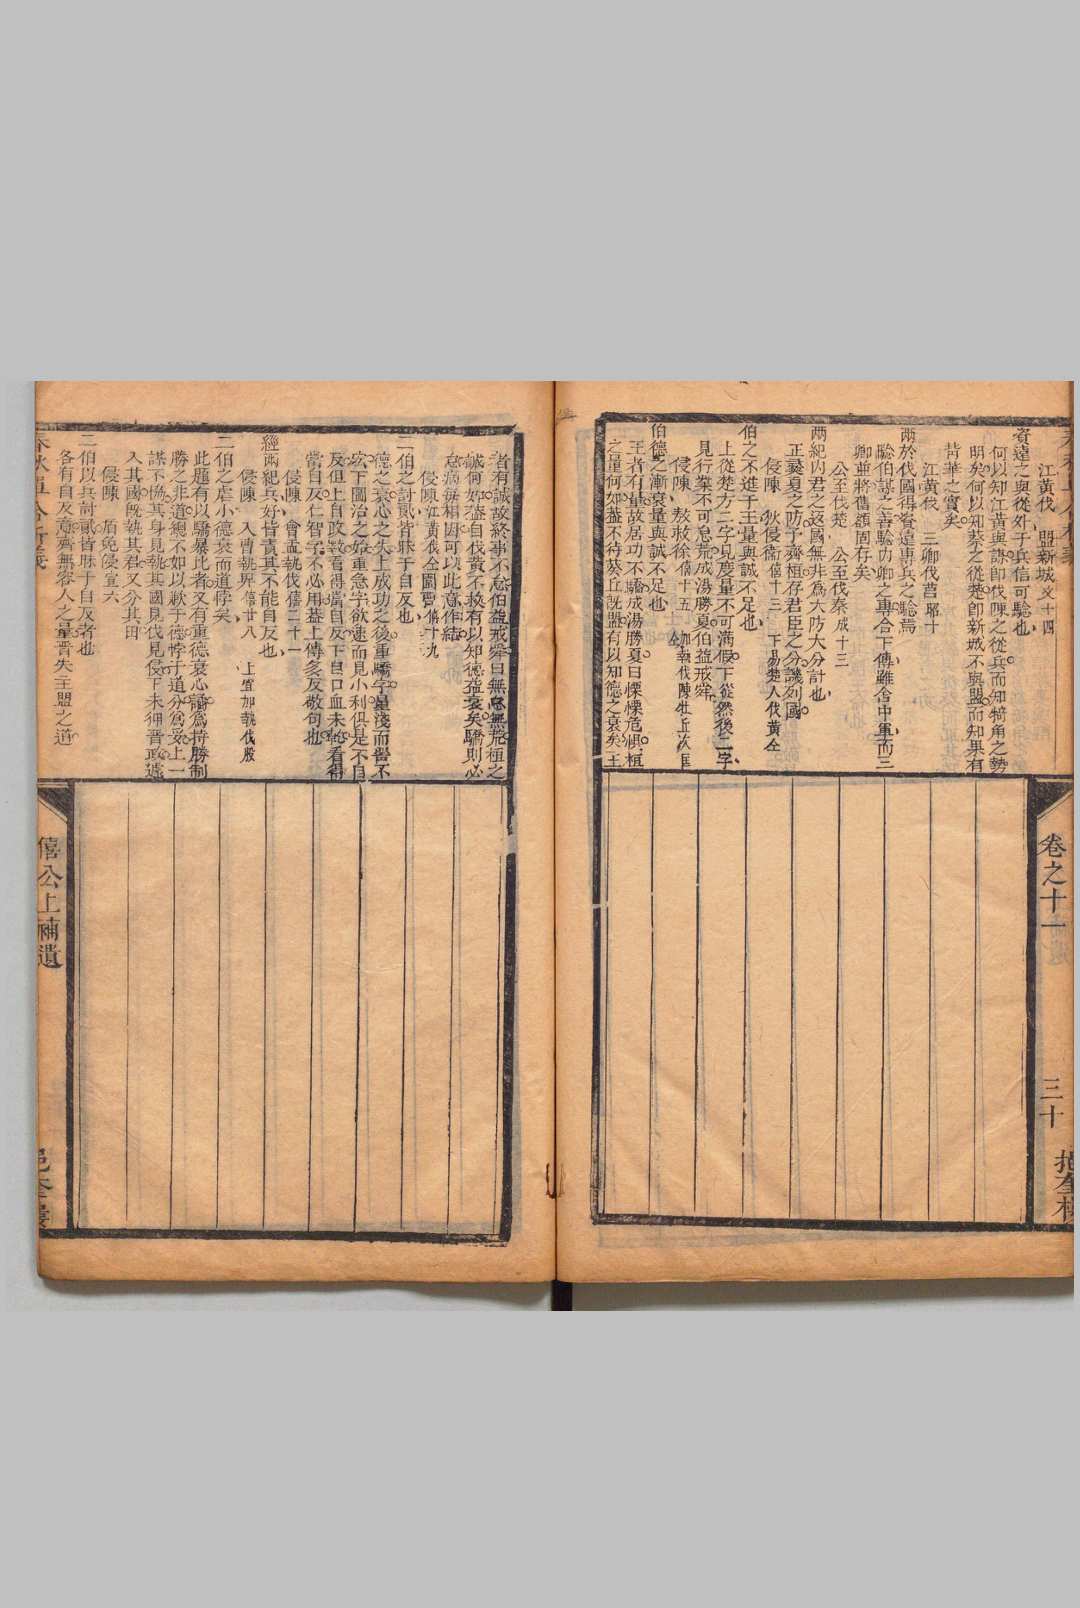 江黃伐　盟新城文十四
資遠之與從外于兵信可驗也
何以知江黃與謀卽伐陳之從兵而知犄角之勢
明矣何以知蔡之從楚卽新城不與盟而知果有
背華之實矣
江黃伐　三卿伐莒昭十
兩於伐國得資遠專兵之驗焉
驗伯謀之善驗內卿之專合下傳雖舍中軍而三
卿並將舊額固存矣
公至伐楚　公至伐秦成十三
兩紀內君之返國無非為大防大分計也
正裔夏之防予齊桓存君臣之分譏列國
侵陳　狄侵衛僖十三　下易楚人伐黃仝
伯之不進于王量與誠不足也
上從楚方二字見度量不可滿假下從然後二字
見行業不可怠荒成湯勝夏伯益戒舜
侵陳　救徐僖十五
伯德之漸衰量與誠不足也
王者有量故居功不驕成湯勝夏曰慄慄危懼桓
之量何如葢不待葵丘旣盟有以知德之衰矣王
者有誠故終事不怠伯益戒舜曰無怠無荒桓之
誠何如葢自伐黃不救有以知德益衰矣驕則必
怠病每相因可以此意作結
侵陳江黃伐仝圍曹僖十九
二伯之討貳皆昧于自反也
德之衰心之失上成功之後重驕字量淺而器不
宏下圖治之始重急字欲速而見小利俱是不自
反但上自敗敎看得當自反下自口血未乾看得
當自反仁智字不必用葢上傳多反敬句也
侵陳　會盂執伐僖二十一
經兩紀兵好皆責其不能自反也
侵陳　入曹執畀僖廿八　上宜加執伐股
二伯之虐小德衰而道悖矣
此題有以驕暴比者又有重德衰心譎爲持勝制
勝之非道總不如以歉于德悖于道分爲妥上一
謀不愜其身見執其國見伐見侵下未狎晉政遽
入其國旣執其君又分其田
侵陳　盾免侵宣六
二伯以兵討貳皆昧于自反者也
各有自反意齊無容人之量晉失主盟之道
卷之十一
三十
僖公上補遺